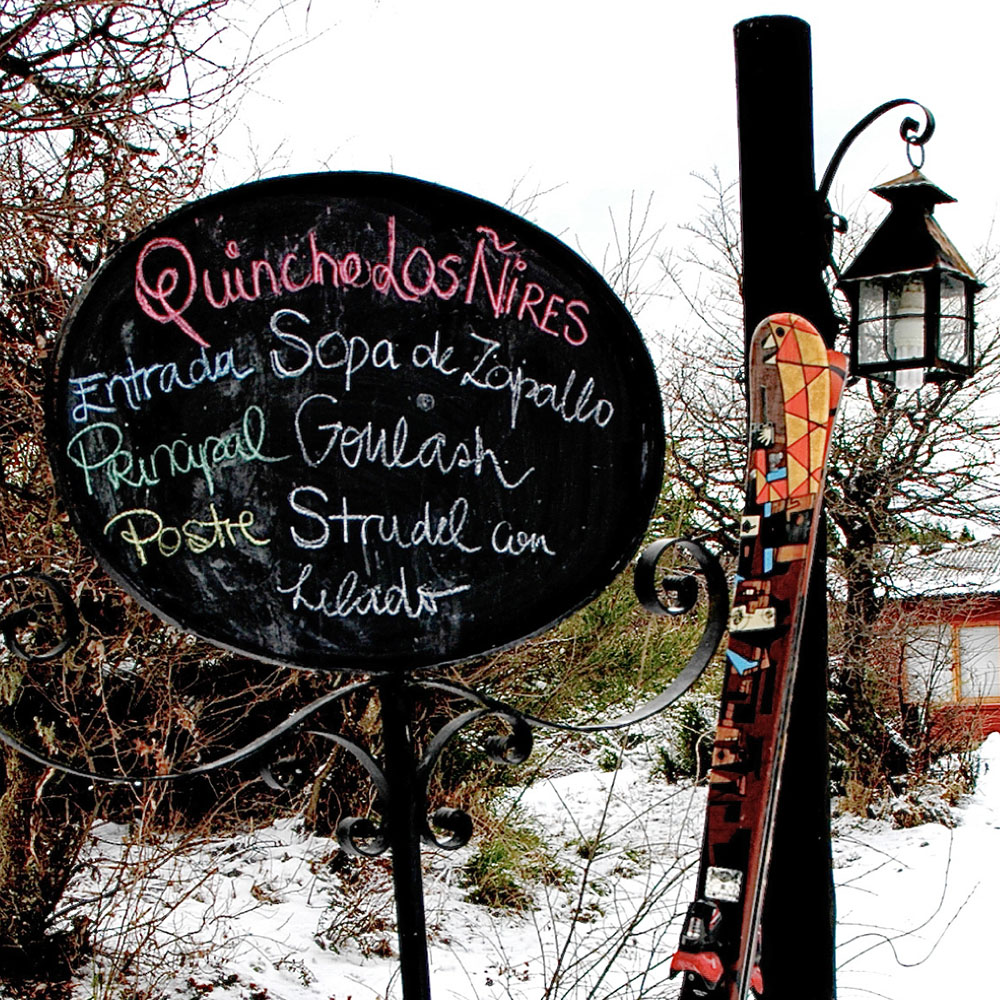 Quincho Los Ñires
Entrada Sopa de Zapallo
Principal Goulash
Postre Strudel con
helado